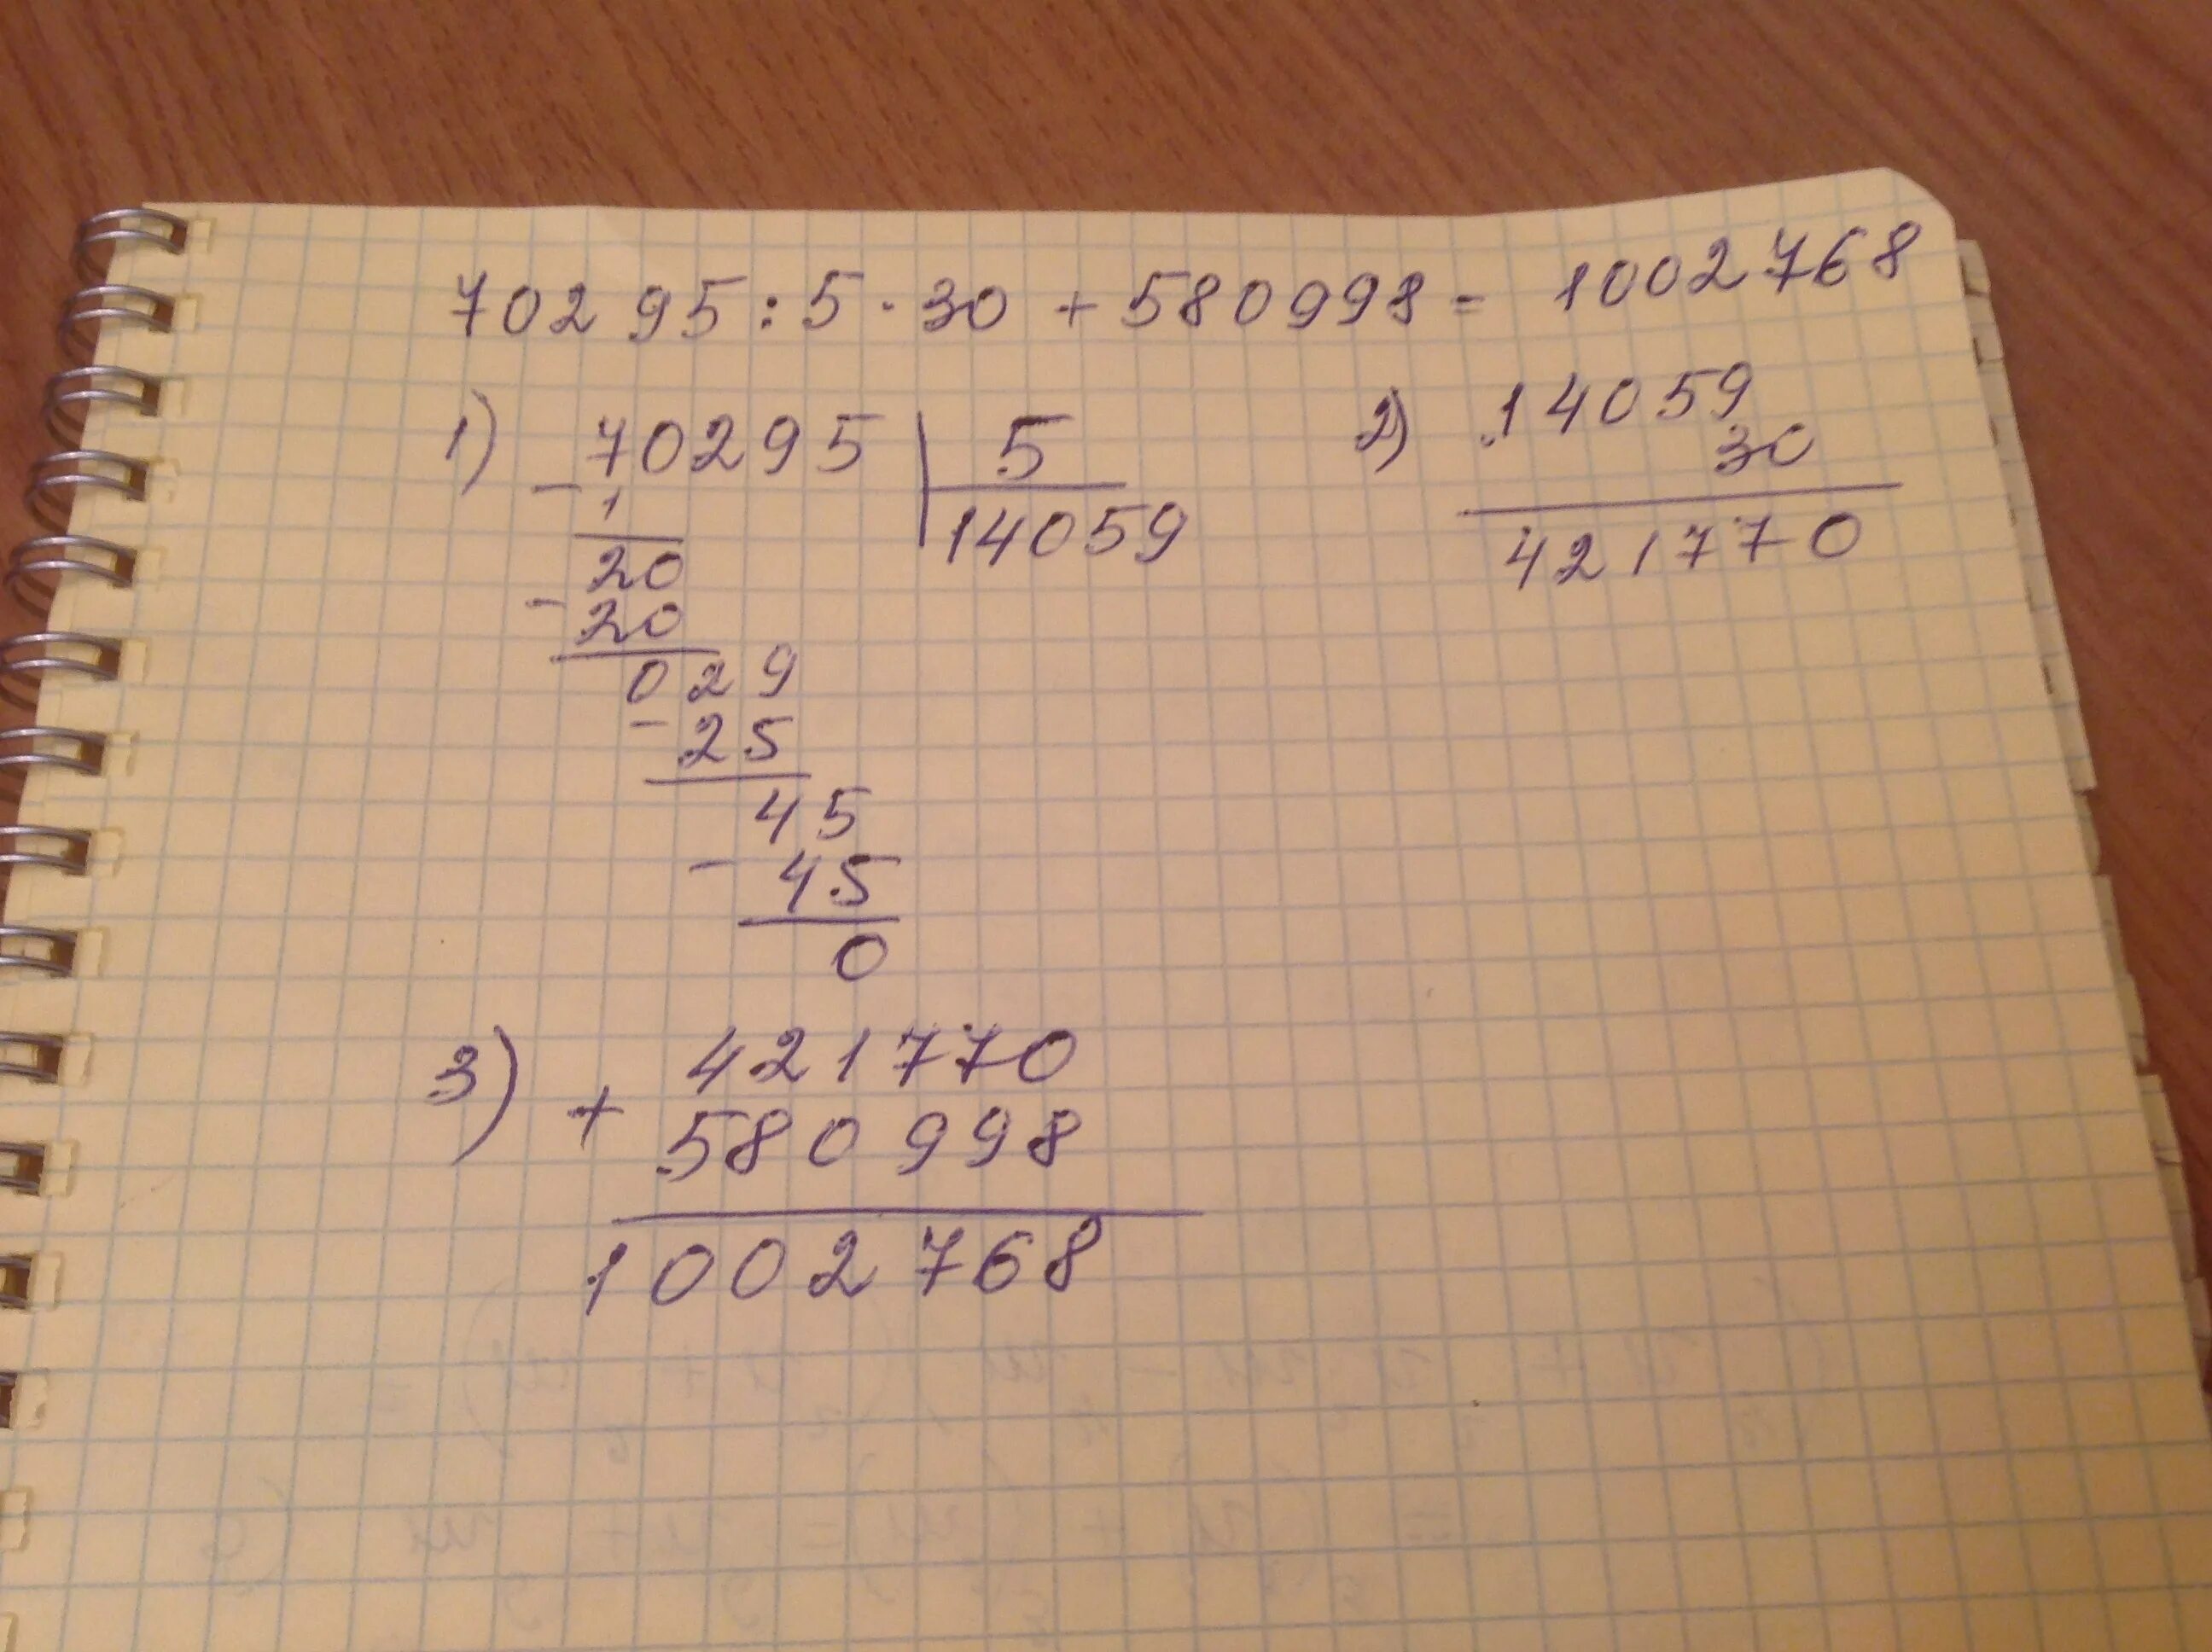 70295:5·30+580998= 1002768
1) 70295 5
- 1 14059
20
- 20
029
- 25
45
- 45
0
2) 14059
30
421770
3) 421770
+ 580998
1002768